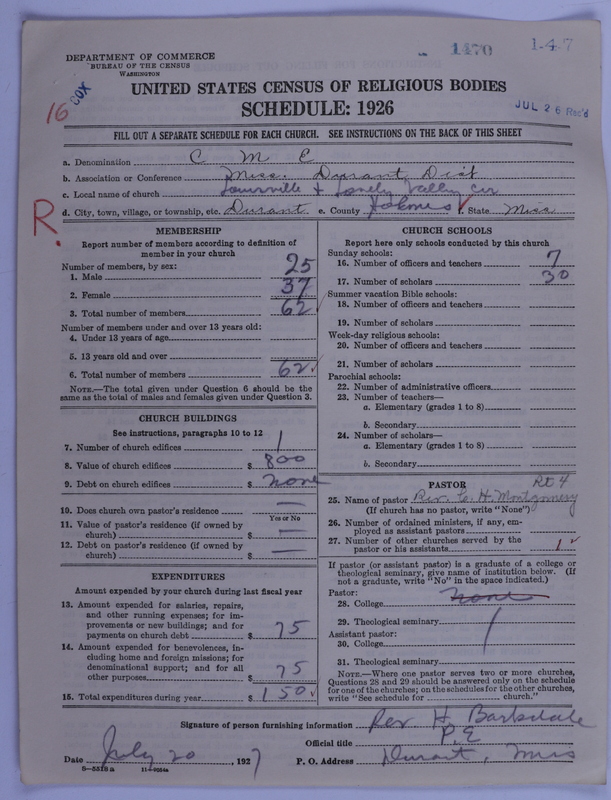 DEPARTMENT OF COMMERCE
BUREAU OF THE CENSUS
WASHINGTON
1470
1-4-7
16
COX
UNITED STATES CENSUS OF RELIGIOUS BODIES
SCHEDULE: 1926
JUL 26 Rec'd
FILL OUT A SEPARATE SCHEDULE FOR EACH CHURCH. SEE INSTRUCTIONS ON THE BACK OF THIS SHEET
a. Denomination C M E
b. Association or Conference Miss. Durant Dist
c. Local name of church + Lonely Valley Cir
d. City, town, village, or township, etc. Durant e. County Holmes f. State Miss
R.
MEMBERSHIP
Report number of members according to definition of
member in your church
Number of members, by sex:
1. Male 25
2. Female 37
3. Total number of members 62
Number of members under and over 13 years old:
4. Under 13 years of age
5. 13 years old and over
6. Total number of members 62 ✓
NOTE.—The total given under Question 6 should be the
same as the total of males and females given under Question 3.
CHURCH BUILDINGS
See instructions, paragraphs 10 to 12
7. Number of church edifices 1
8. Value of church edifices $ 800
9. Debt on church edifices $ none
10. Does church own pastor's residence —
Yes or No
11. Value of pastor's residence (if owned by
church) $ —
12. Debt on pastor's residence (if owned by
church) $ —
EXPENDITURES
Amount expended by your church during last fiscal year
13. Amount expended for salaries, repairs,
and other running expenses; for im-
provements or new buildings; and for
payments on church debt $ 75
14. Amount expended for benevolences, in-
cluding home and foreign missions; for
denominational support; and for all
other purposes $ 75
15. Total expenditures during year $ 150 ✓
CHURCH SCHOOLS
Report here only schools conducted by this church
Sunday schools:
16. Number of officers and teachers 7
17. Number of scholars 30
Summer vacation Bible schools:
18. Number of officers and teachers
19. Number of scholars
Week-day religious schools:
20. Number of officers and teachers
21. Number of scholars
Parochial schools:
22. Number of administrative officers
23. Number of teachers—
a. Elementary (grades 1 to 8)
b. Secondary
24. Number of scholars—
a. Elementary (grades 1 to 8)
b. Secondary
PASTOR
Rt 4
25. Name of pastor Rev. C. H. Montgomery
(If church has no pastor, write "None")
26. Number of ordained ministers, if any, em-
ployed as assistant pastors
27. Number of other churches served by the
pastor or his assistants 1 ✓
If pastor (or assistant pastor) is a graduate of a college or
theological seminary, give name of institution below. (If
not a graduate, write "No" in the space indicated.)
Pastor:
28. College none
29. Theological seminary
Assistant pastor:
30. College
31. Theological seminary
NOTE.—Where one pastor serves two or more churches,
Questions 28 and 29 should be answered only on the schedule
for one of the churches; on the schedules for the other churches,
write "See schedule for church."
Signature of person furnishing information Rev H Barksdale
Official title P.E
Date July 20, 1927
P. O. Address Durant, Miss
8—5518a 11—9054a